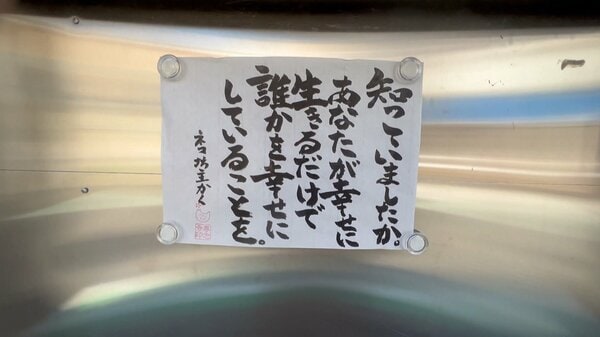 知っていましたか。
あなたが幸せに
生きるだけで
誰かを幸せに
していることを。
ネコ坊主かく